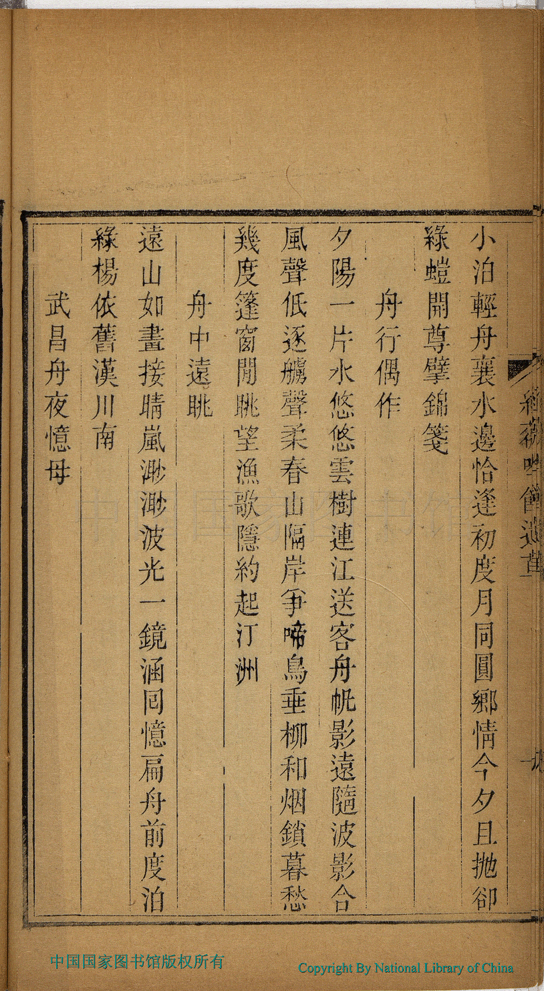 小泊輕舟襄水邊恰逢初度月同圓鄉情今夕且拋卻
綠螘開尊擘錦箋
舟行偶作
夕陽一片水悠悠雲樹連江送客舟帆影遠隨波影合
風聲低逐艣聲柔春山隔岸爭啼鳥垂柳和烟鎖暮愁
幾度篷窗閒眺望漁歌隱約起汀洲
舟中遠眺
遠山如畫接晴嵐渺渺波光一鏡涵回憶扁舟前度泊
綠楊依舊漢川南
武昌舟夜憶母
中国国家图书馆版权所有
Copyright By National Library of China